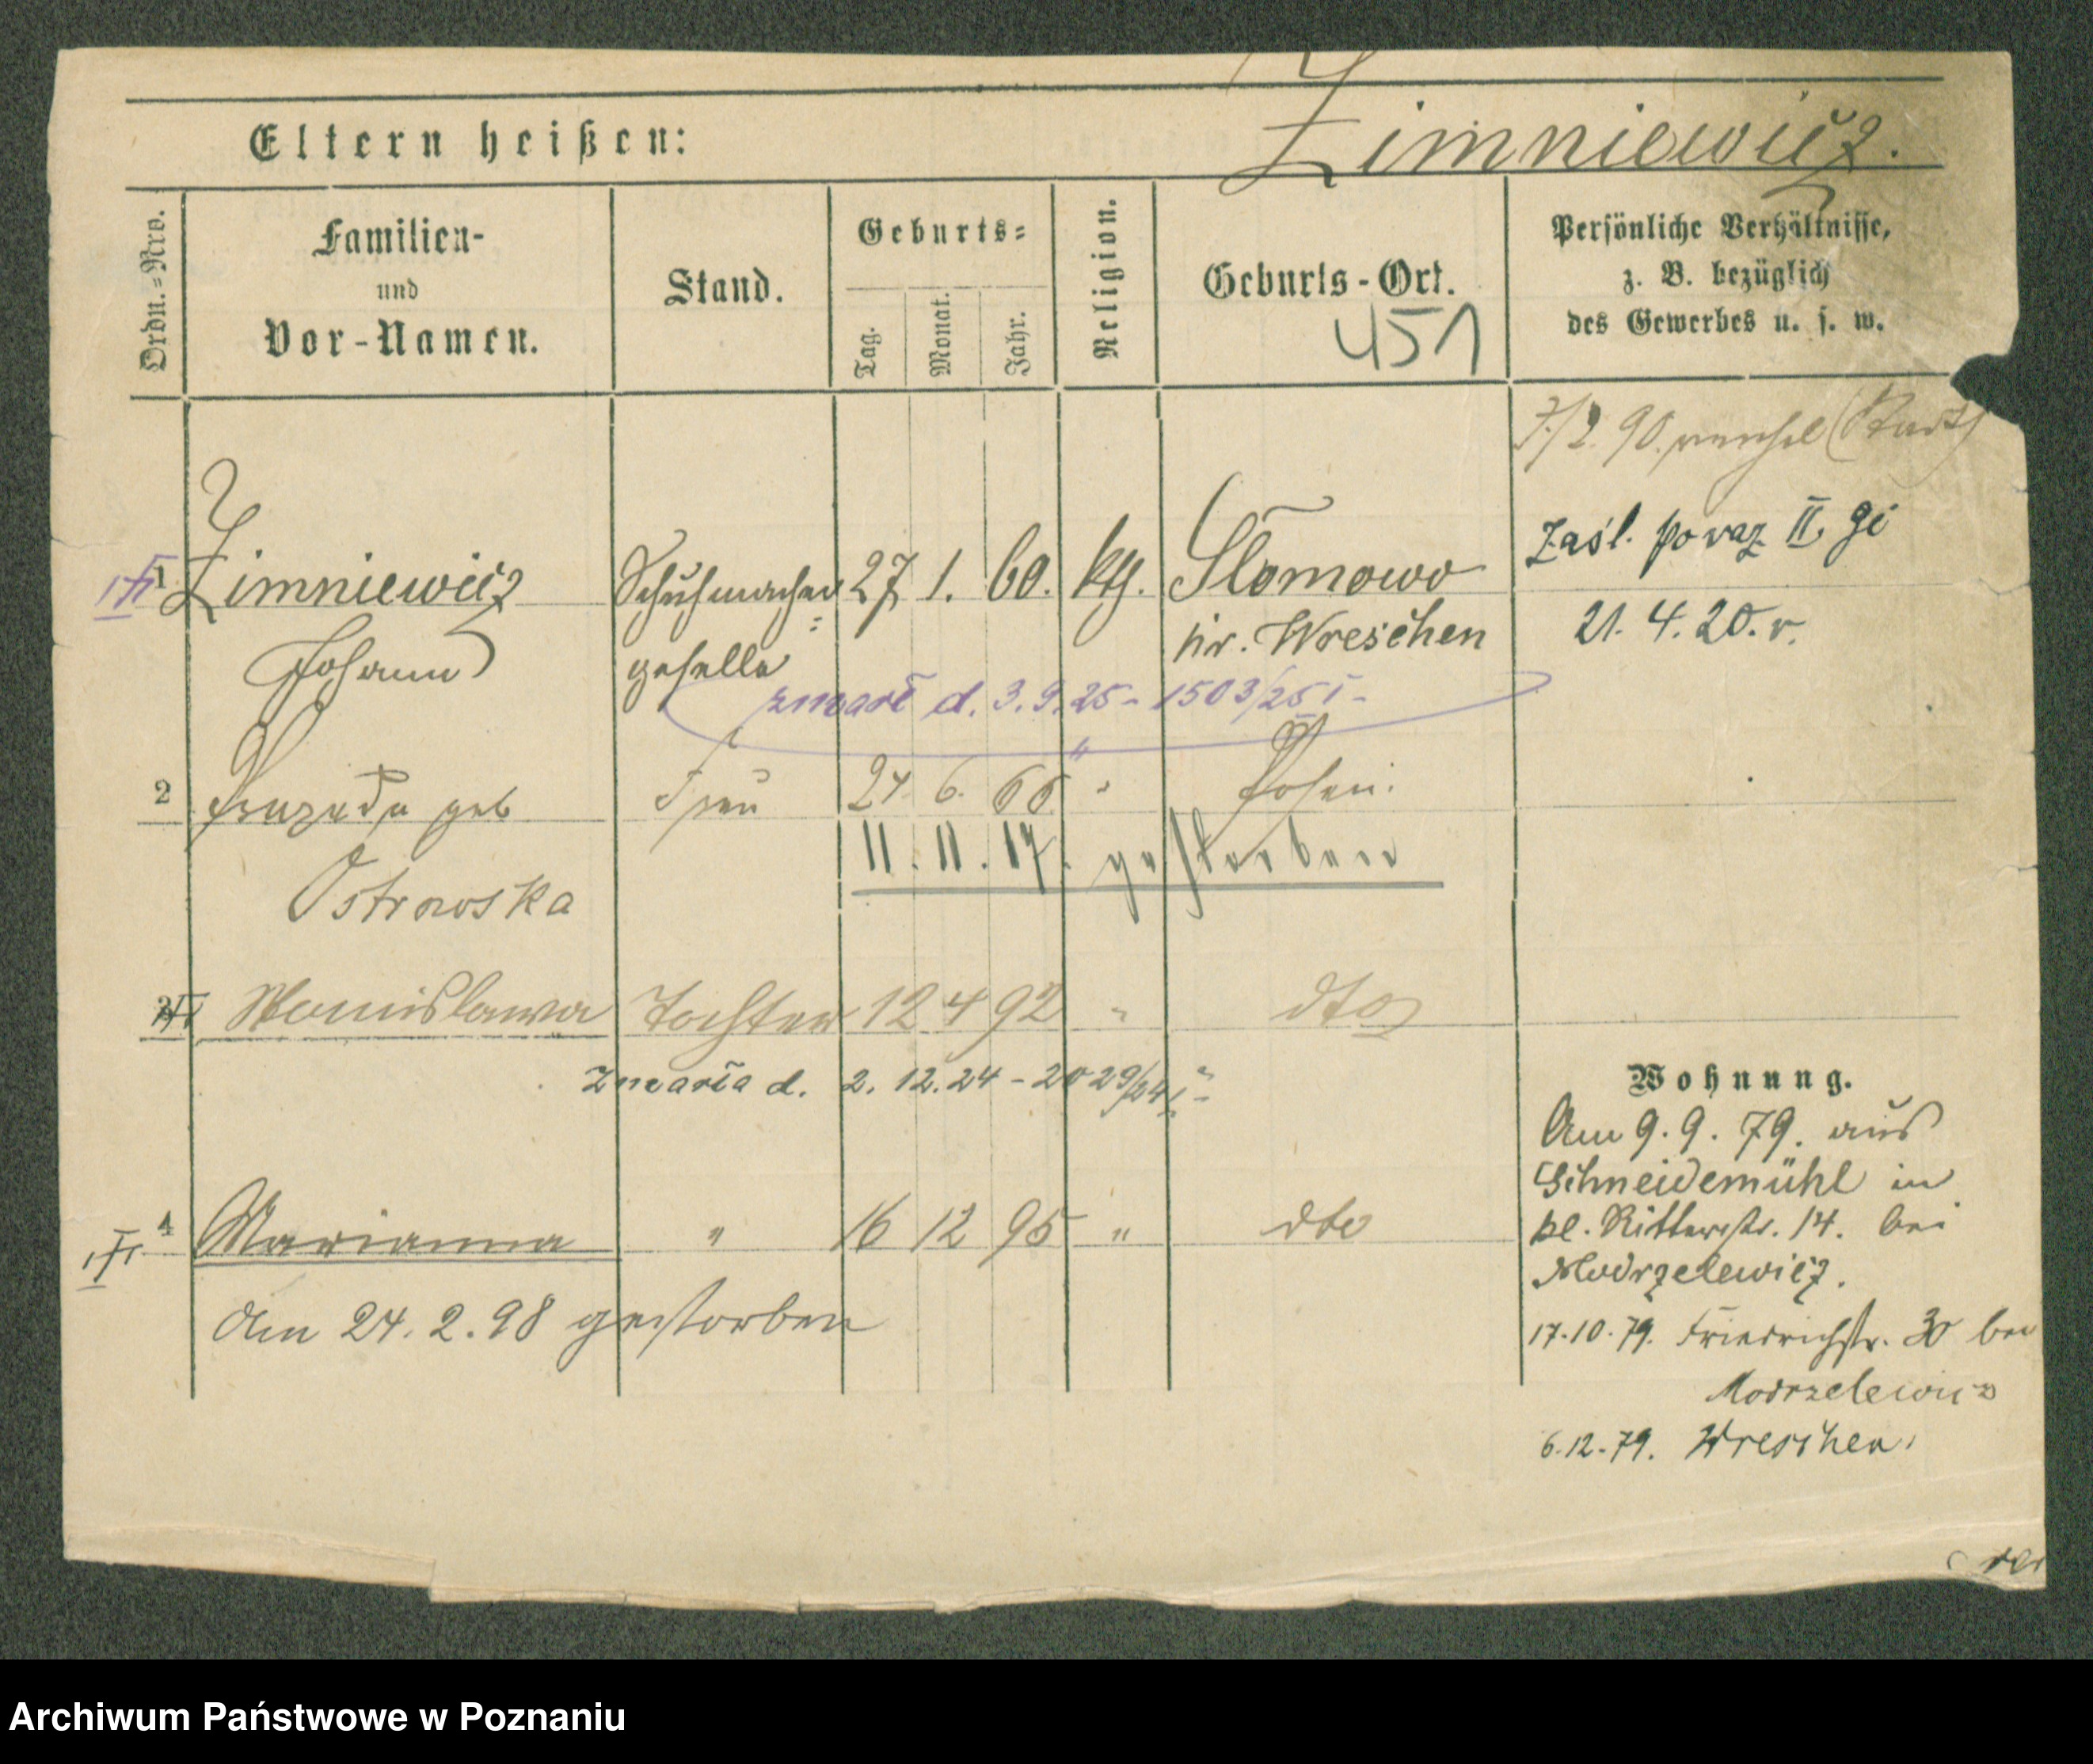 Zimniewicz.
Eltern heißen:
Ordn.=Nro.
Familien-
und
Vor-Namen.
Stand.
Geburts=
Tag.
Monat.
Jahr.
Religion.
Geburts-Ort.
451
Persönliche Verhältnisse,
z. B. bezüglich
des Gewerbes u. s. w.
7/2. 90.
1 Zimniewicz Schuhmacher= 27 1. 60. kth. Słomowo
Johann geselle kr. Wreschen
Zasł. po raz II. gi
21. 4. 20. r.
zmarł d. 3. 9. 25 - 1503/25 I -
2 geb Frau 24. 6. 66 " Posen.
Ostrowska
11. 11. 17. gestorben
3 Stanislawa Tochter 12 4 92 " dto
zmarła d. 2. 12. 24 - 2029/24 I -
4 Marianna " 16 12 95 " dto
Am 24. 2. 98 gestorben
Wohnung.
Am 9. 9. 79. aus
Schneidemühl in
kl. Ritterstr. 14. bei
Modrzelewicz.
17. 10. 79. Friedrichstr. 30 bei
Modrzelewicz
6. 12. 79. Wreschen.
Archiwum Państwowe w Poznaniu